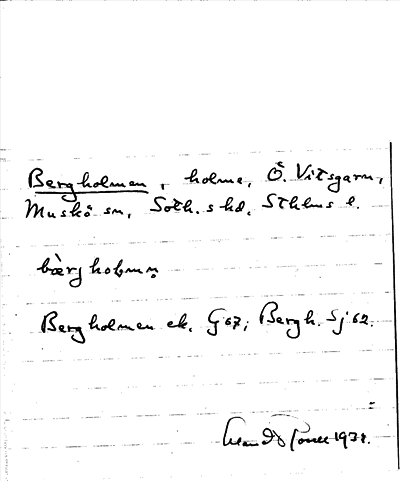 Bergholmen, holme, Ö. Vitsgarn,
Muskö sn, Soth.s hd, Sthlms l.
bærgholmen
Bergholmen ek. G 67; Bergh. Sj 62.
1938.